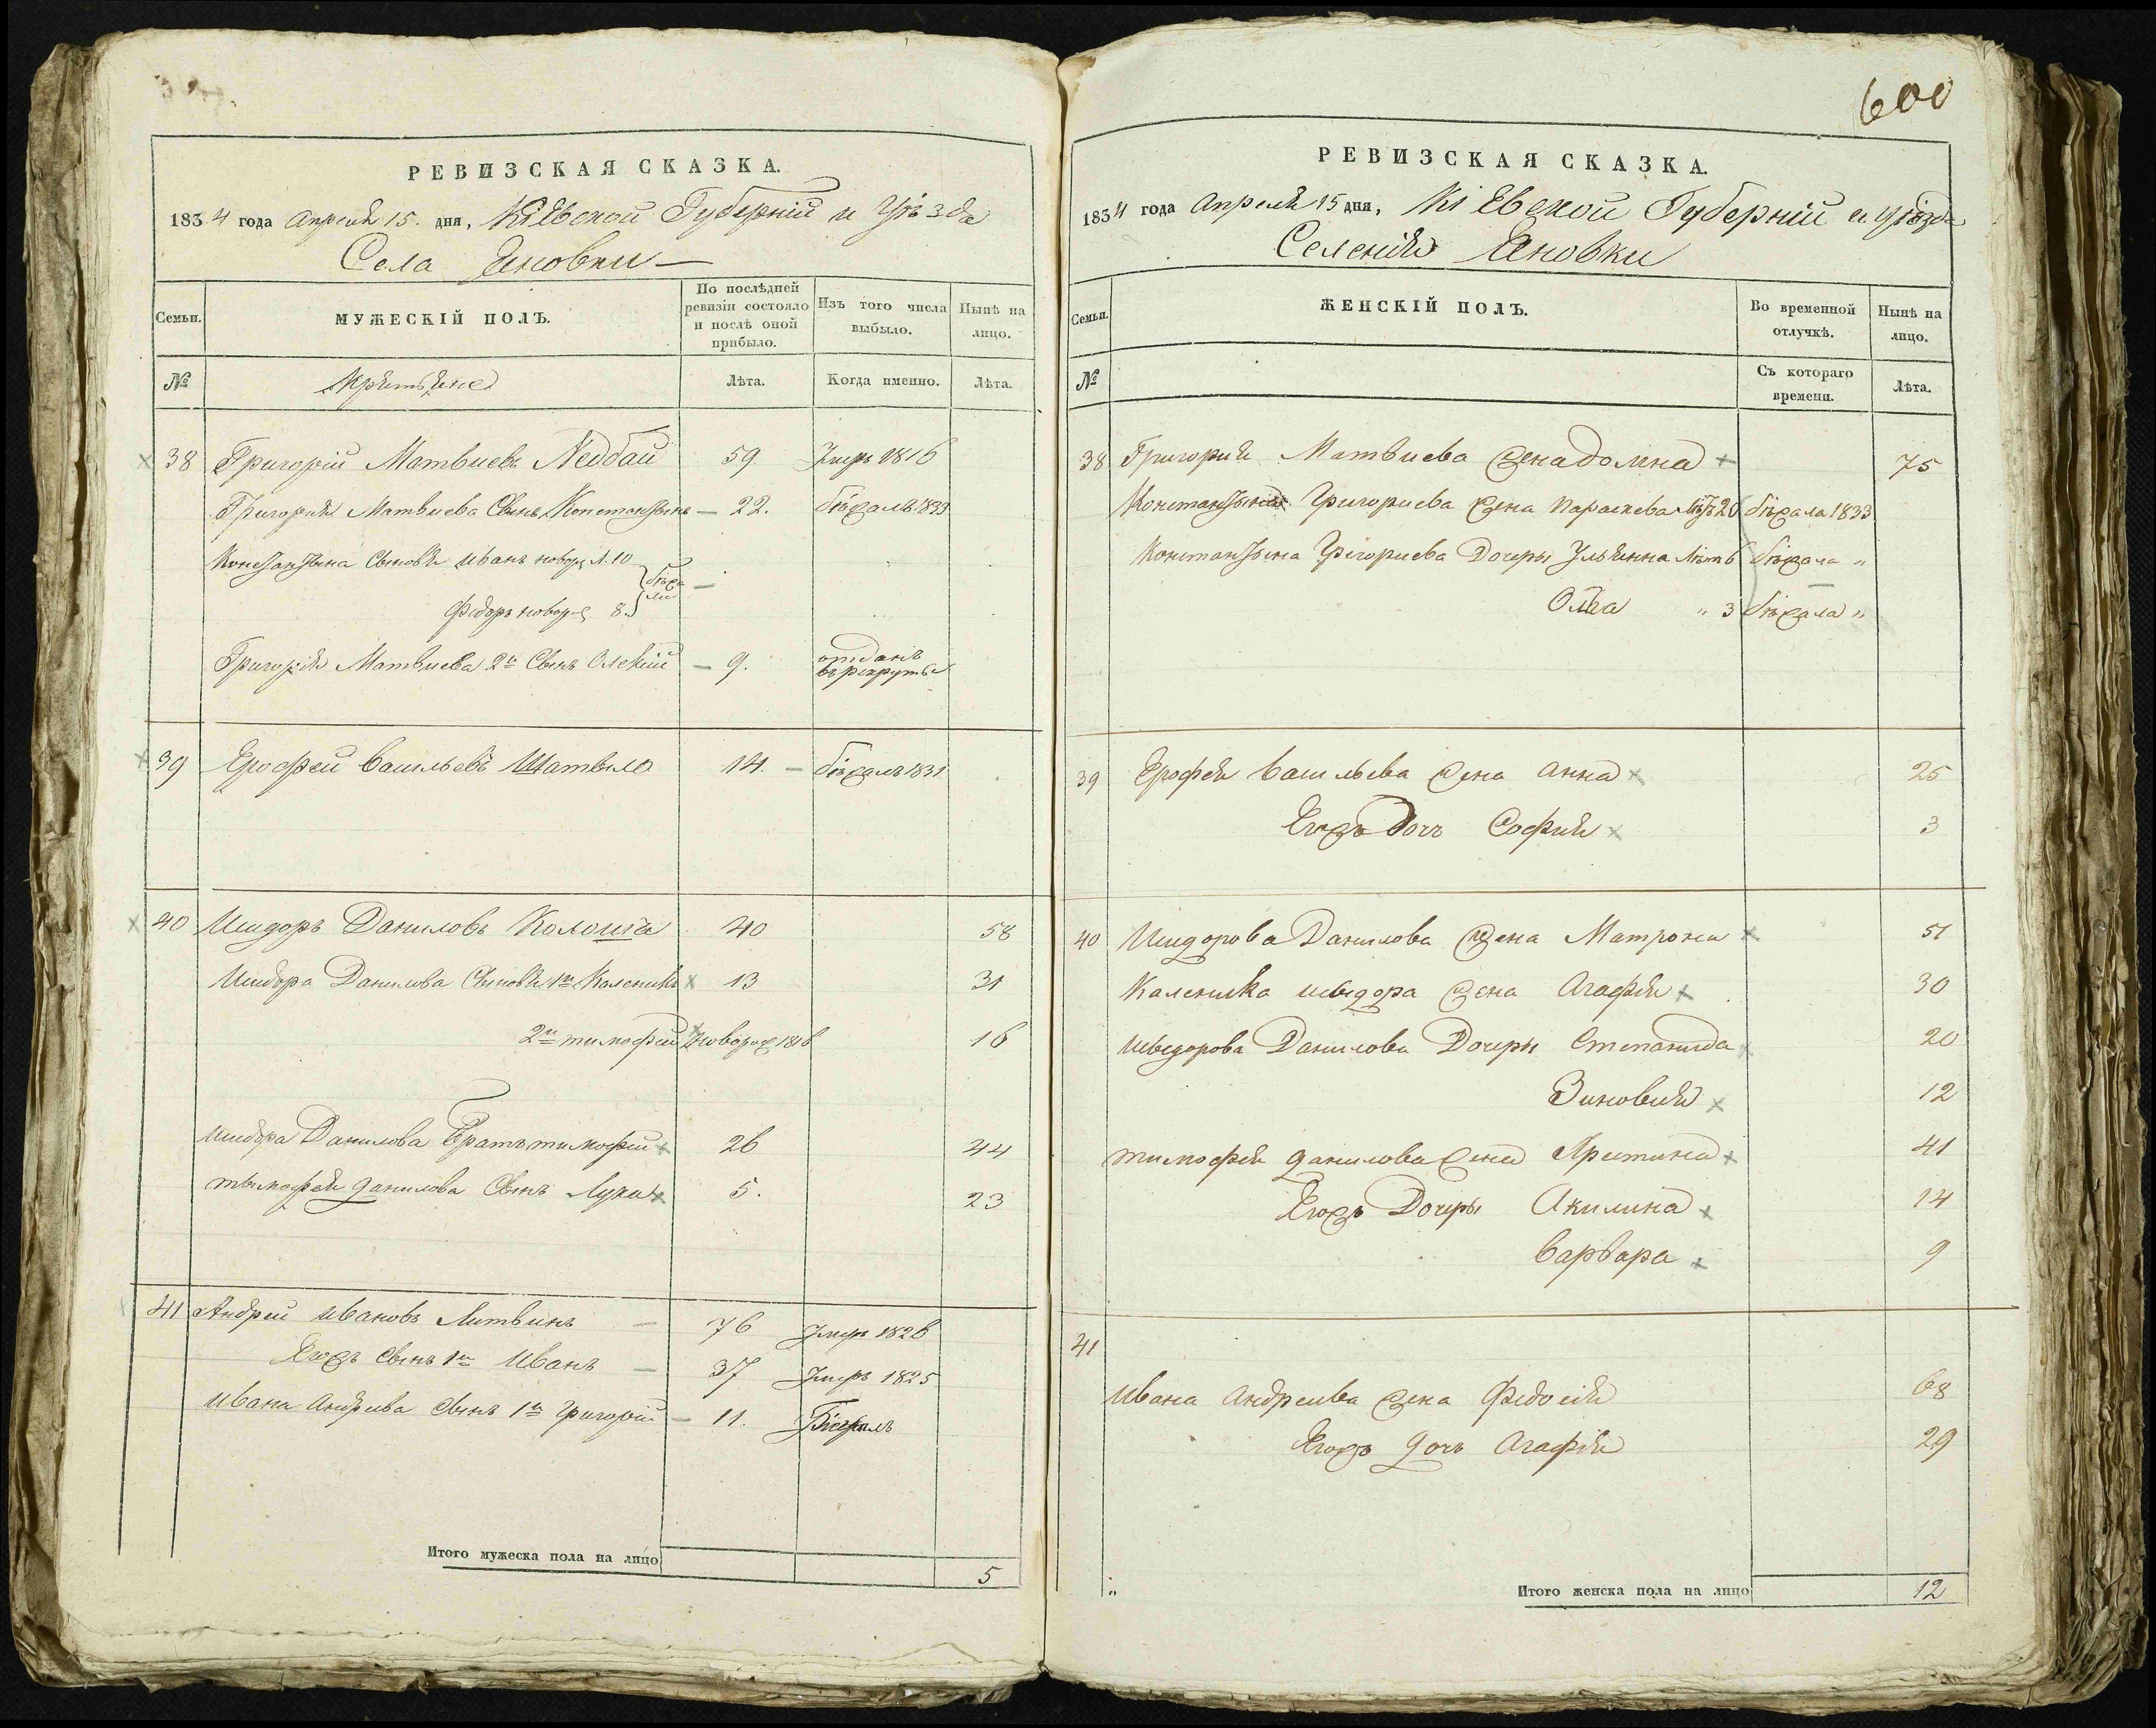 РЕВИЗСКАЯ СКАЗКА.
1834 года Апреля 15. дня, Кіевской Губерніи и Уѣзда
Села Яновки
Семьи.
МУЖЕСКІЙ ПОЛЪ.
По послѣдней ревизіи состояло и послѣ оной прибыло.
Изъ того числа выбыло.
Нынѣ на лицо.
№
Крѣстьяне
Лѣта.
Когда именно.
Лѣта.
38 Григорій Матвиевъ Недбай 59 Умеръ 1816
Григория Матвиева Сынъ Константынъ 22. бѣжалъ 1833
Константына Сыновя Иванъ новор. Л. 10
Федоръ новор. 8. бѣжали
Григорія Матвиева 2й Сынъ Олекій 9. отданъ въ рекруты
39 Ерофей Васильевъ Шатыло 14. бѣжалъ 1831
40 Исидоръ Даниловъ Колоша 40 58
Исидора Данилова Сыновя 1й Каленикъ 13 31
2й тимофей новорож 1816 16
Исидора Данилова Братъ тимофей 26 44
тымофея данилова Сынъ Лука 5. 23
41 Андрей Ивановъ Литвинъ 76 Умеръ 1826
Егожъ Сынъ 1й Иванъ 37 Умеръ 1825
Ивана Андреева Сынъ 1й Григорій 11. Бѣжалъ
Итого мужеска пола на лицо 5
600
РЕВИЗСКАЯ СКАЗКА.
1834 года Апреля 15 дня, Кіевской Губерніи и Уѣзда
Селенія Яновки
Семьи.
ЖЕНСКІЙ ПОЛЪ.
Во временной отлучкѣ.
Нынѣ на лицо.
№
Съ котораго времени.
Лѣта.
38 Григория Матвиева жена домна 75
Константына Григориева жена Параскева бѣжала 1833
Константына Григориева Дочери Ульянна Лѣтъ 6 бѣжала "
Олга " 3 бѣжала "
39 Ерофея Васильева жена Анна 25
Егожъ Дочь София 3
40 Исидорова Данилова жена Матрона 51
Каленика исидора жена Агафия 30
Исидорова Данилова Дочери Степанида 20
Зиновия 12
тимофея данилова жена Христина 41
Егожъ Дочери Акилина 14
Варвара 9
41
Ивана Андреива жена Федосія 68
Егожъ дочь Агафія 29
Итого женска пола на лицо 12